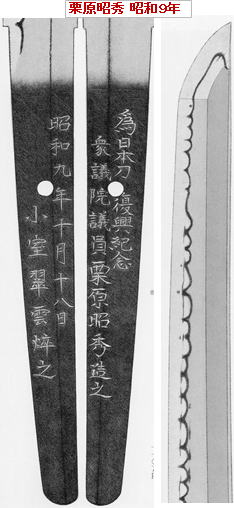 栗原昭秀 昭和9年
為日本刀復興紀念
衆議院議員栗原昭秀造之
昭和九年十月十八日
小室翠雲焠之